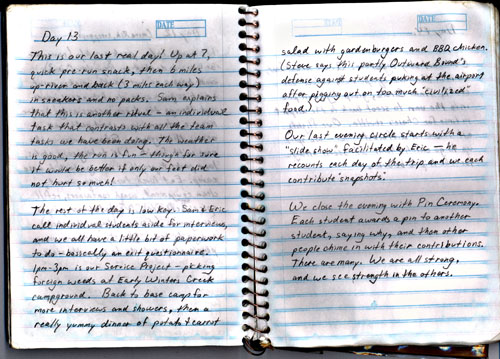 DATE
Day 13
This is our last real day! Up at 7,
quick pre-run snack, then 6 miles
up-river and back (3 miles each way)
in sneakers and no packs. Sam explains
that this is another ritual - an individual
task that contrasts with all the team
tasks we have been doing. The weather
is good, the run is fun - tho it's for sure
it would be better if only our feet did
not hurt so much!
The rest of the day is low key. Sam & Eric
call individual students aside for interviews,
and we all have a little bit of paperwork
to do - basically an exit questionnaire.
1pm-3pm is our Service Project - picking
foreign weeds at Early Winters Creek
campground. Back to base camp for
more interviews and showers, then a
really yummy dinner of potato + carrot
DATE
salad with gardenburgers and BBQ chicken.
(Steve says this partly Outward Bound's
defense against students puking at the airport
after pigging out on too much "civilized"
food).
Our last evening circle starts with a
"slide show" facilitated by Eric - he
recounts each day of the trip and we each
contribute "snapshots"
We close the evening with Pin Ceremony.
Each student awards a pin to another
student, saying why, and then other
people chime in with their contributions.
There are many. We are all strong,
and we see strength in the others.